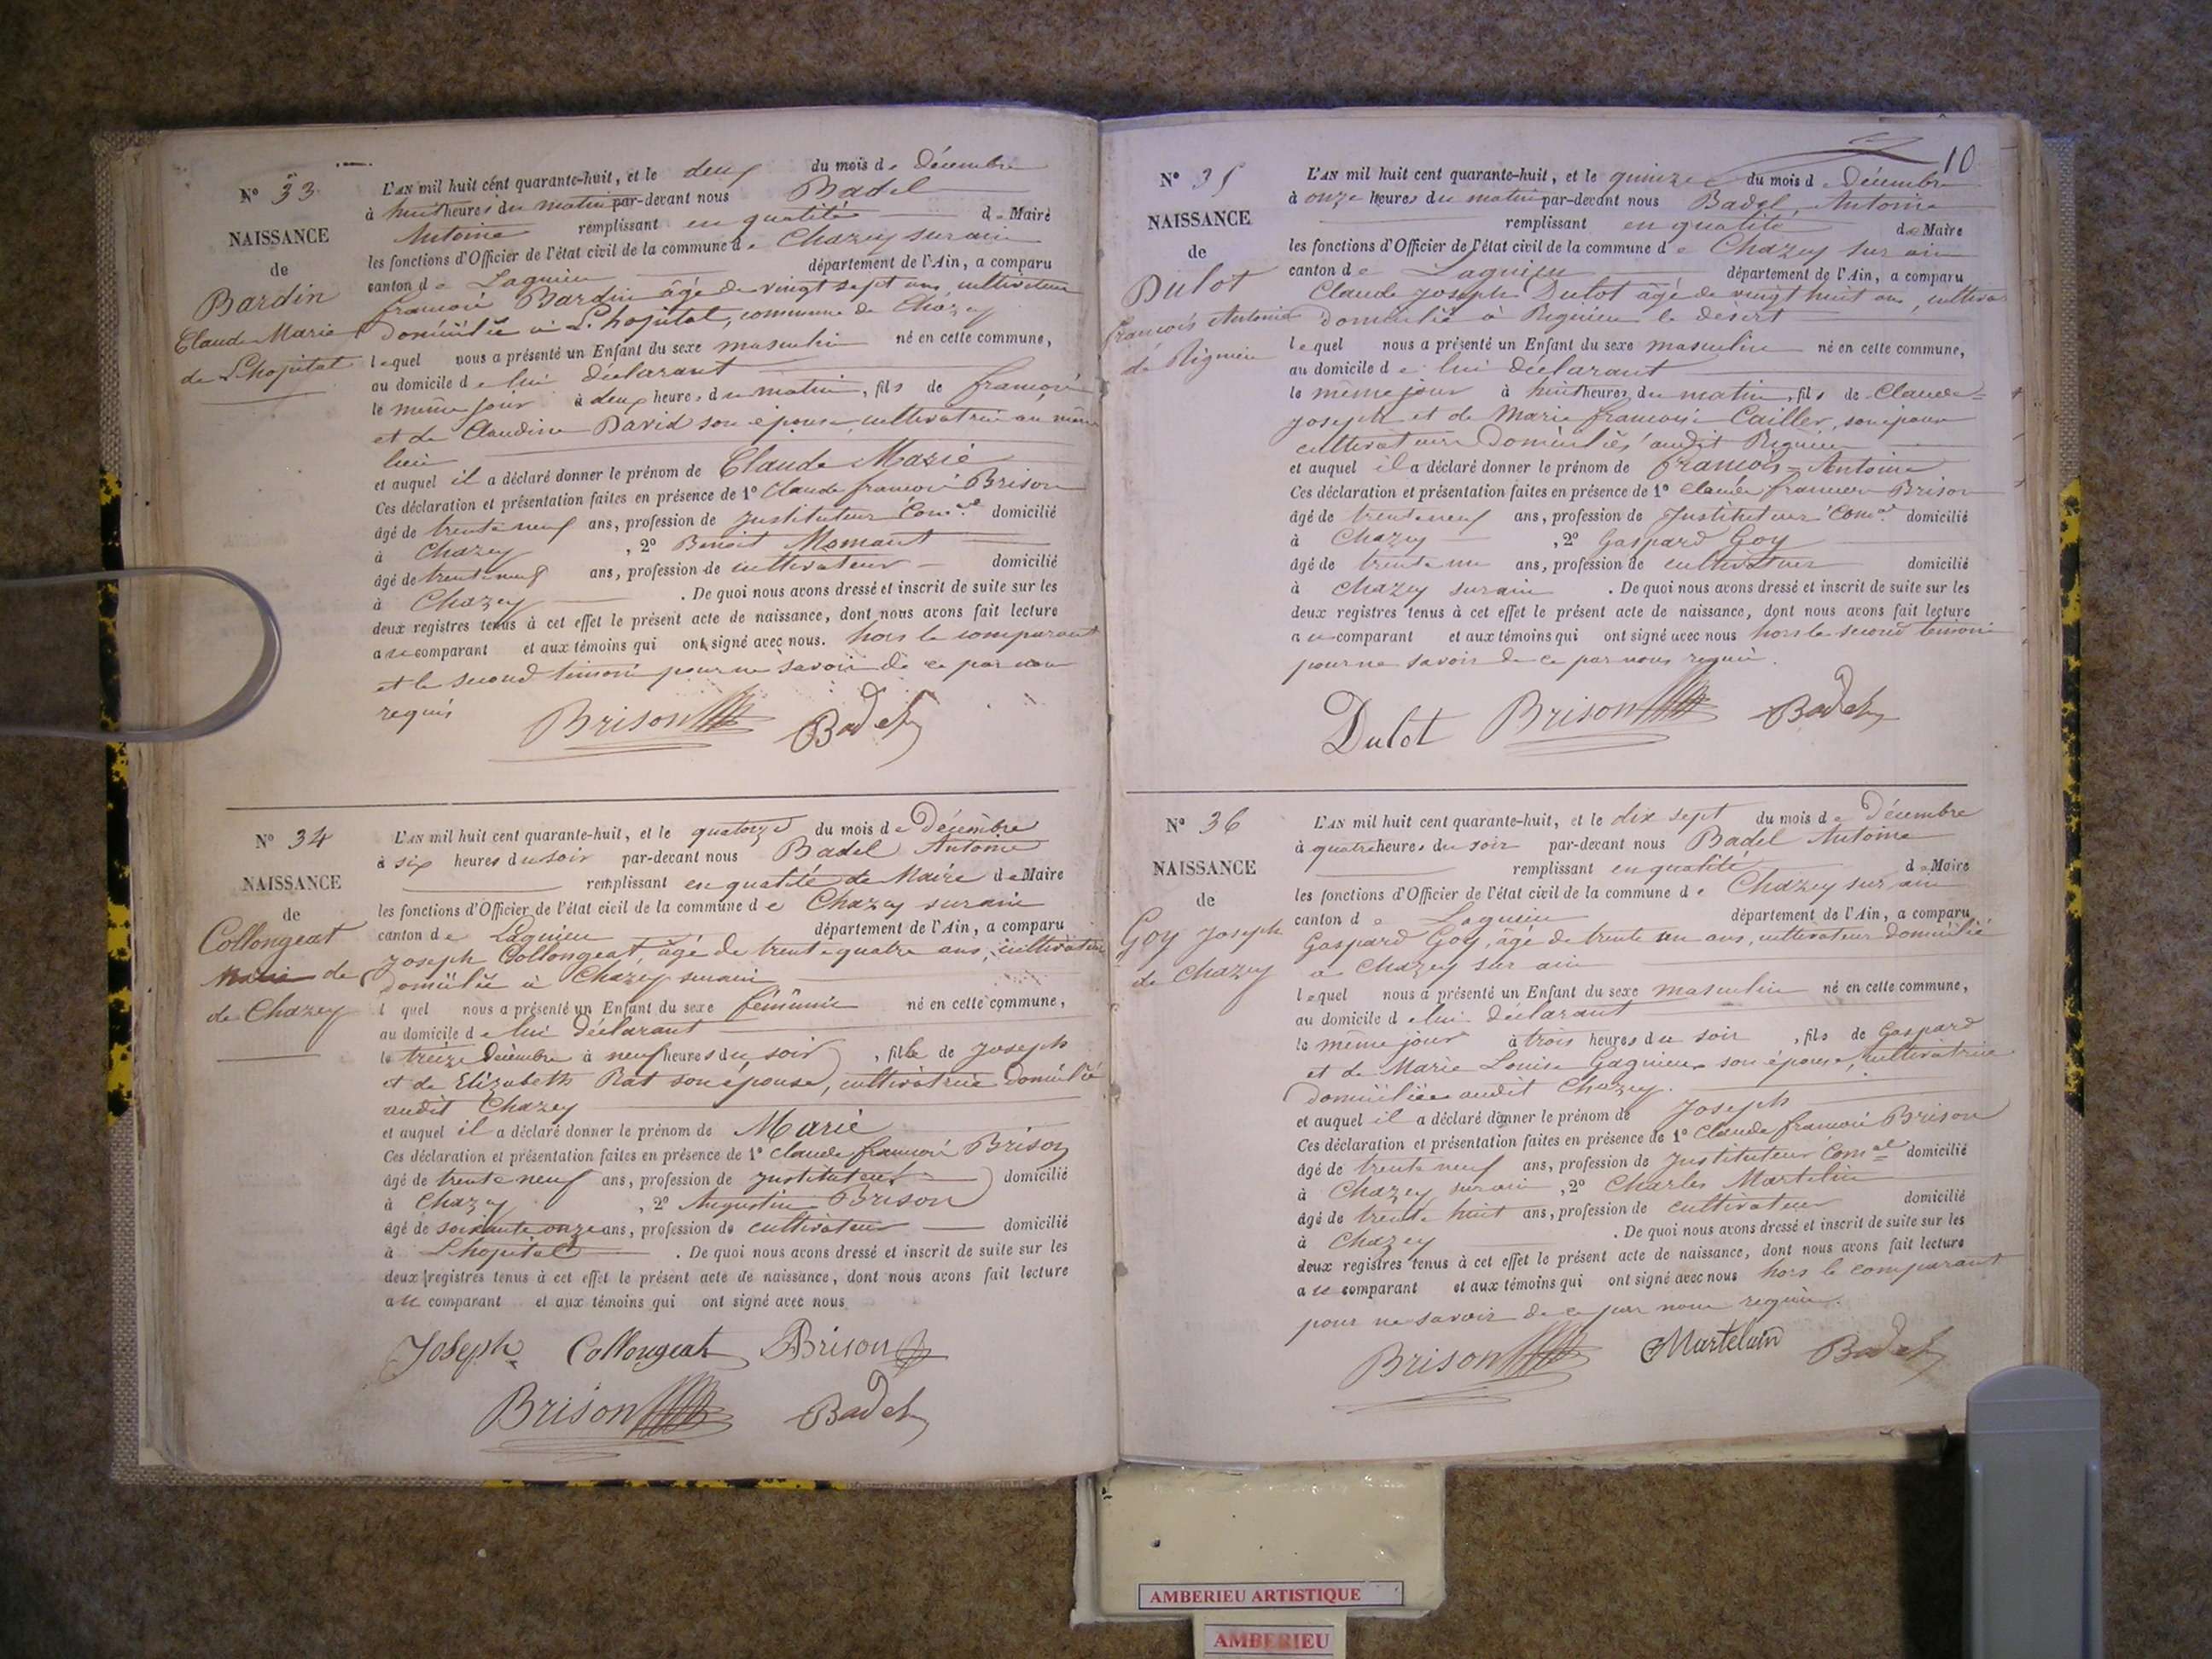 N° 33.
NAISSANCE
de
Bardin
Claude Marie
de L'hopital
L'AN mil huit cent quarante-huit, et le deux du mois de Décembre
à huit heures du matin par-devant nous Badel
Antoine remplissant en qualité de Maire
les fonctions d'Officier de l'état civil de la commune de Chazey sur ain
canton de Lagnieu département de l'Ain, a comparu
françois Bardin âgé de vingt sept ans, cultivateur
Domicilié à L'hopital, commune de Chazey
lequel nous a présenté un Enfant du sexe masculin né en cette commune,
au domicile de lui déclarant
le même jour à deux heures du matin, fils de françois
et de Claudine David son épouse, cultivatrice au même
lieu
et auquel il a déclaré donner le prénom de Claude Marie
Ces déclaration et présentation faites en présence de 1° Claude françois Brison
âgé de trente neuf ans, profession de Instituteur Com.al domicilié
à Chazey, 2° Benoit Momant
âgé de trente neuf ans, profession de cultivateur domicilié
à Chazey. De quoi nous avons dressé et inscrit de suite sur les
deux registres tenus à cet effet le présent acte de naissance, dont nous avons fait lecture
au comparant et aux témoins qui ont signé avec nous. hors le comparant
et le second témoin pour ne savoir de ce par nous
requis
Brison Badel
N° 34
NAISSANCE
de
Collongeat
Marie de
de Chazey
L'AN mil huit cent quarante-huit, et le quatorze du mois de Décembre
à six heures du soir par-devant nous Badel Antoine
remplissant en qualité de Maire de Maire
les fonctions d'Officier de l'état civil de la commune de Chazey sur ain
canton de Lagnieu département de l'Ain, a comparu
Joseph Collongeat, âgé de trente quatre ans, cultivateur
domicilié à Chazey sur ain
l quel nous a présenté un Enfant du sexe féminin né en cette commune,
au domicile de lui déclarant
le treize Décembre à neuf heures du soir, fille de Joseph
et de Elizabeth Rat son épouse, cultivatrice domicilié
audit Chazey
et auquel il a déclaré donner le prénom de Marie
Ces déclaration et présentation faites en présence de 1° Claude françois Brison
âgé de trente neuf ans, profession de Instituteur domicilié
à Chazey, 2° Augustin Brison
âgé de soixante onze ans, profession de cultivateur domicilié
à L'hopital. De quoi nous avons dressé et inscrit de suite sur les
deux registres tenus à cet effet le présent acte de naissance, dont nous avons fait lecture
au comparant et aux témoins qui ont signé avec nous
Joseph Collongeat Brison
Brison Badel
10
N° 35
NAISSANCE
de
Dulot
françois Antoine
de Rignieu
L'AN mil huit cent quarante-huit, et le quinze du mois de Décembre
à onze heures du matin par-devant nous Badel Antoine
remplissant en qualité de Maire
les fonctions d'Officier de l'état civil de la commune de Chazey sur ain
canton de Lagnieu département de l'Ain, a comparu
Claude Joseph Dulot âgé de vingt huit ans, cultivat
Domicilié à Rignieu le désert
lequel nous a présenté un Enfant du sexe masculin né en cette commune,
au domicile de lui déclarant
le même jour à huit heures du matin, fils de Claude=
Joseph et de Marie françoise Cailler, son épouse
cultivateurs Domiciliés audit Rignieu
et auquel il a déclaré donner le prénom de françois=Antoine
Ces déclaration et présentation faites en présence de 1° Claude françois Brison
âgé de trente neuf ans, profession de Instituteur Com.al domicilié
à Chazey, 2° Gaspard Goy
âgé de trente un ans, profession de cultivateur domicilié
à Chazey sur ain. De quoi nous avons dressé et inscrit de suite sur les
deux registres tenus à cet effet le présent acte de naissance, dont nous avons fait lecture
au comparant et aux témoins qui ont signé avec nous hors le second témoin
pour ne savoir de ce par nous requis.
Dulot Brison Badel
N° 36
NAISSANCE
de
Goy Joseph
de Chazey
L'AN mil huit cent quarante-huit, et le dix sept du mois de Décembre
à quatre heures du soir par-devant nous Badel Antoine
remplissant en qualité de Maire
les fonctions d'Officier de l'état civil de la commune de Chazey sur ain
canton de Lagnieu département de l'Ain, a comparu
Gaspard Goy, âgé de trente un ans, cultivateur domicilié
à Chazey sur ain
lequel nous a présenté un Enfant du sexe masculin né en cette commune,
au domicile de lui déclarant
le même jour à trois heures du soir, fils de Gaspard
et de Marie Louise Gagnieu son épouse, cultivatrice
Domiciliée audit Chazey.
et auquel il a déclaré donner le prénom de Joseph
Ces déclaration et présentation faites en présence de 1° Claude françois Brison
âgé de trente neuf ans, profession de Instituteur Com.al domicilié
à Chazey sur ain, 2° Charles Martelin
âgé de trente huit ans, profession de cultivateur domicilié
à Chazey. De quoi nous avons dressé et inscrit de suite sur les
deux registres tenus à cet effet le présent acte de naissance, dont nous avons fait lecture
au comparant et aux témoins qui ont signé avec nous hors le comparant
pour ne savoir de ce par nous requis.
Brison Martelain Badel
AMBERIEU ARTISTIQUE
AMBERIEU